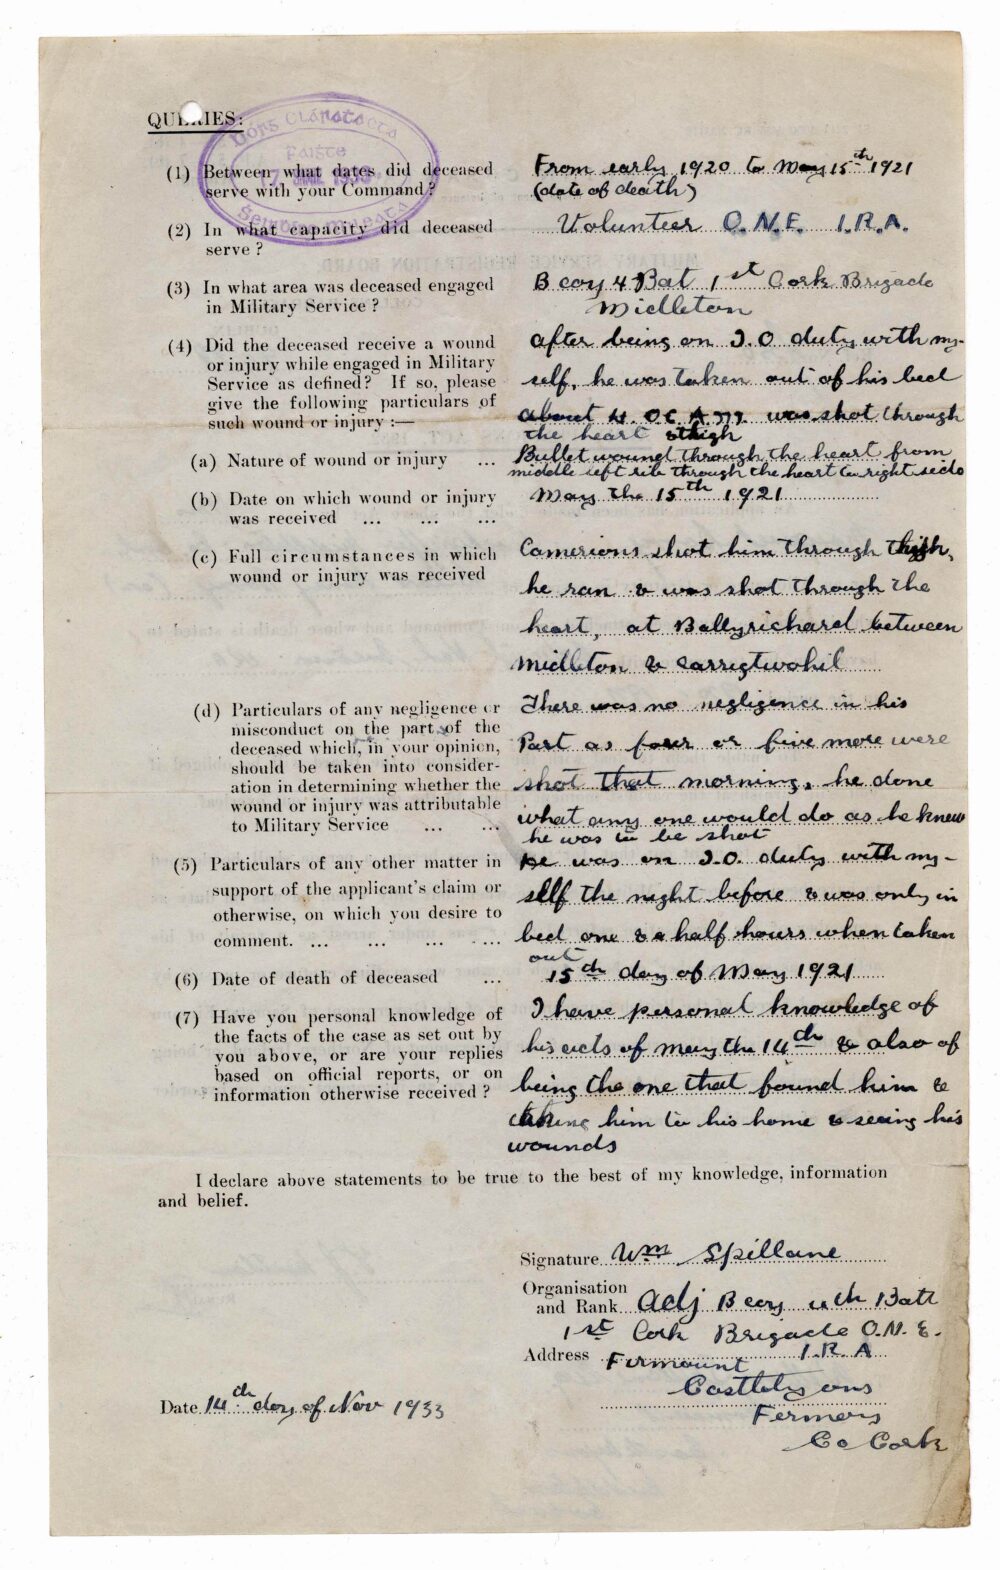 QUERIES:
(1) Between what dates did deceased
serve with your Command?
From early 1920 to May 15th 1921
(date of death)
(2) In what capacity did deceased
serve ?
Volunteer O.N.E. I.R.A.
(3) In what area was deceased engaged
in Military Service ?
B coy 4 Bat 1st Cork Brigade
Midleton
(4) Did the deceased receive a wound
or injury while engaged in Military
Service as defined? If so, please
give the following particulars of
such wound or injury :—
after being on I.O duty with my-
self, he was taken out of his bed
about 4. OC A m. was shot through
the heart & thigh
(a) Nature of wound or injury ...
Bullet wound through the heart from
middle left rib through the heart to right side
(b) Date on which wound or injury
was received ... ... ...
May the 15th 1921
(c) Full circumstances in which
wound or injury was received
Camerions shot him through thigh,
he ran & was shot through the
heart, at Ballyrichard between
Midleton & Carrigtwohil
(d) Particulars of any negligence or
misconduct on the part of the
deceased which, in your opinion,
should be taken into consider-
ation in determining whether the
wound or injury was attributable
to Military Service ... ...
There was no negligence in his
Part as four or five more were
shot that morning, he done
what any one would do as he knew
he was to be shot
(5) Particulars of any other matter in
support of the applicant's claim or
otherwise, on which you desire to
comment. ... ... ... ...
he was on I.O. duty with my-
self the night before & was only in
bed one & a half hours when taken
out
(6) Date of death of deceased ...
15th day of May 1921
(7) Have you personal knowledge of
the facts of the case as set out by
you above, or are your replies
based on official reports, or on
information otherwise received ?
I have personal knowledge of
his acts of May the 14th & also of
being the one that found him &
taking him to his home & seeing his
wounds
I declare above statements to be true to the best of my knowledge, information
and belief.
Signature Wm Spillane
Organisation
and Rank Adj B coy 4th Batt
1st Cork Brigade O.N.E.
I.R.A
Address Firmount
Castlelyons
Fermoy
Co Cork
Date 14th day of Nov 1933